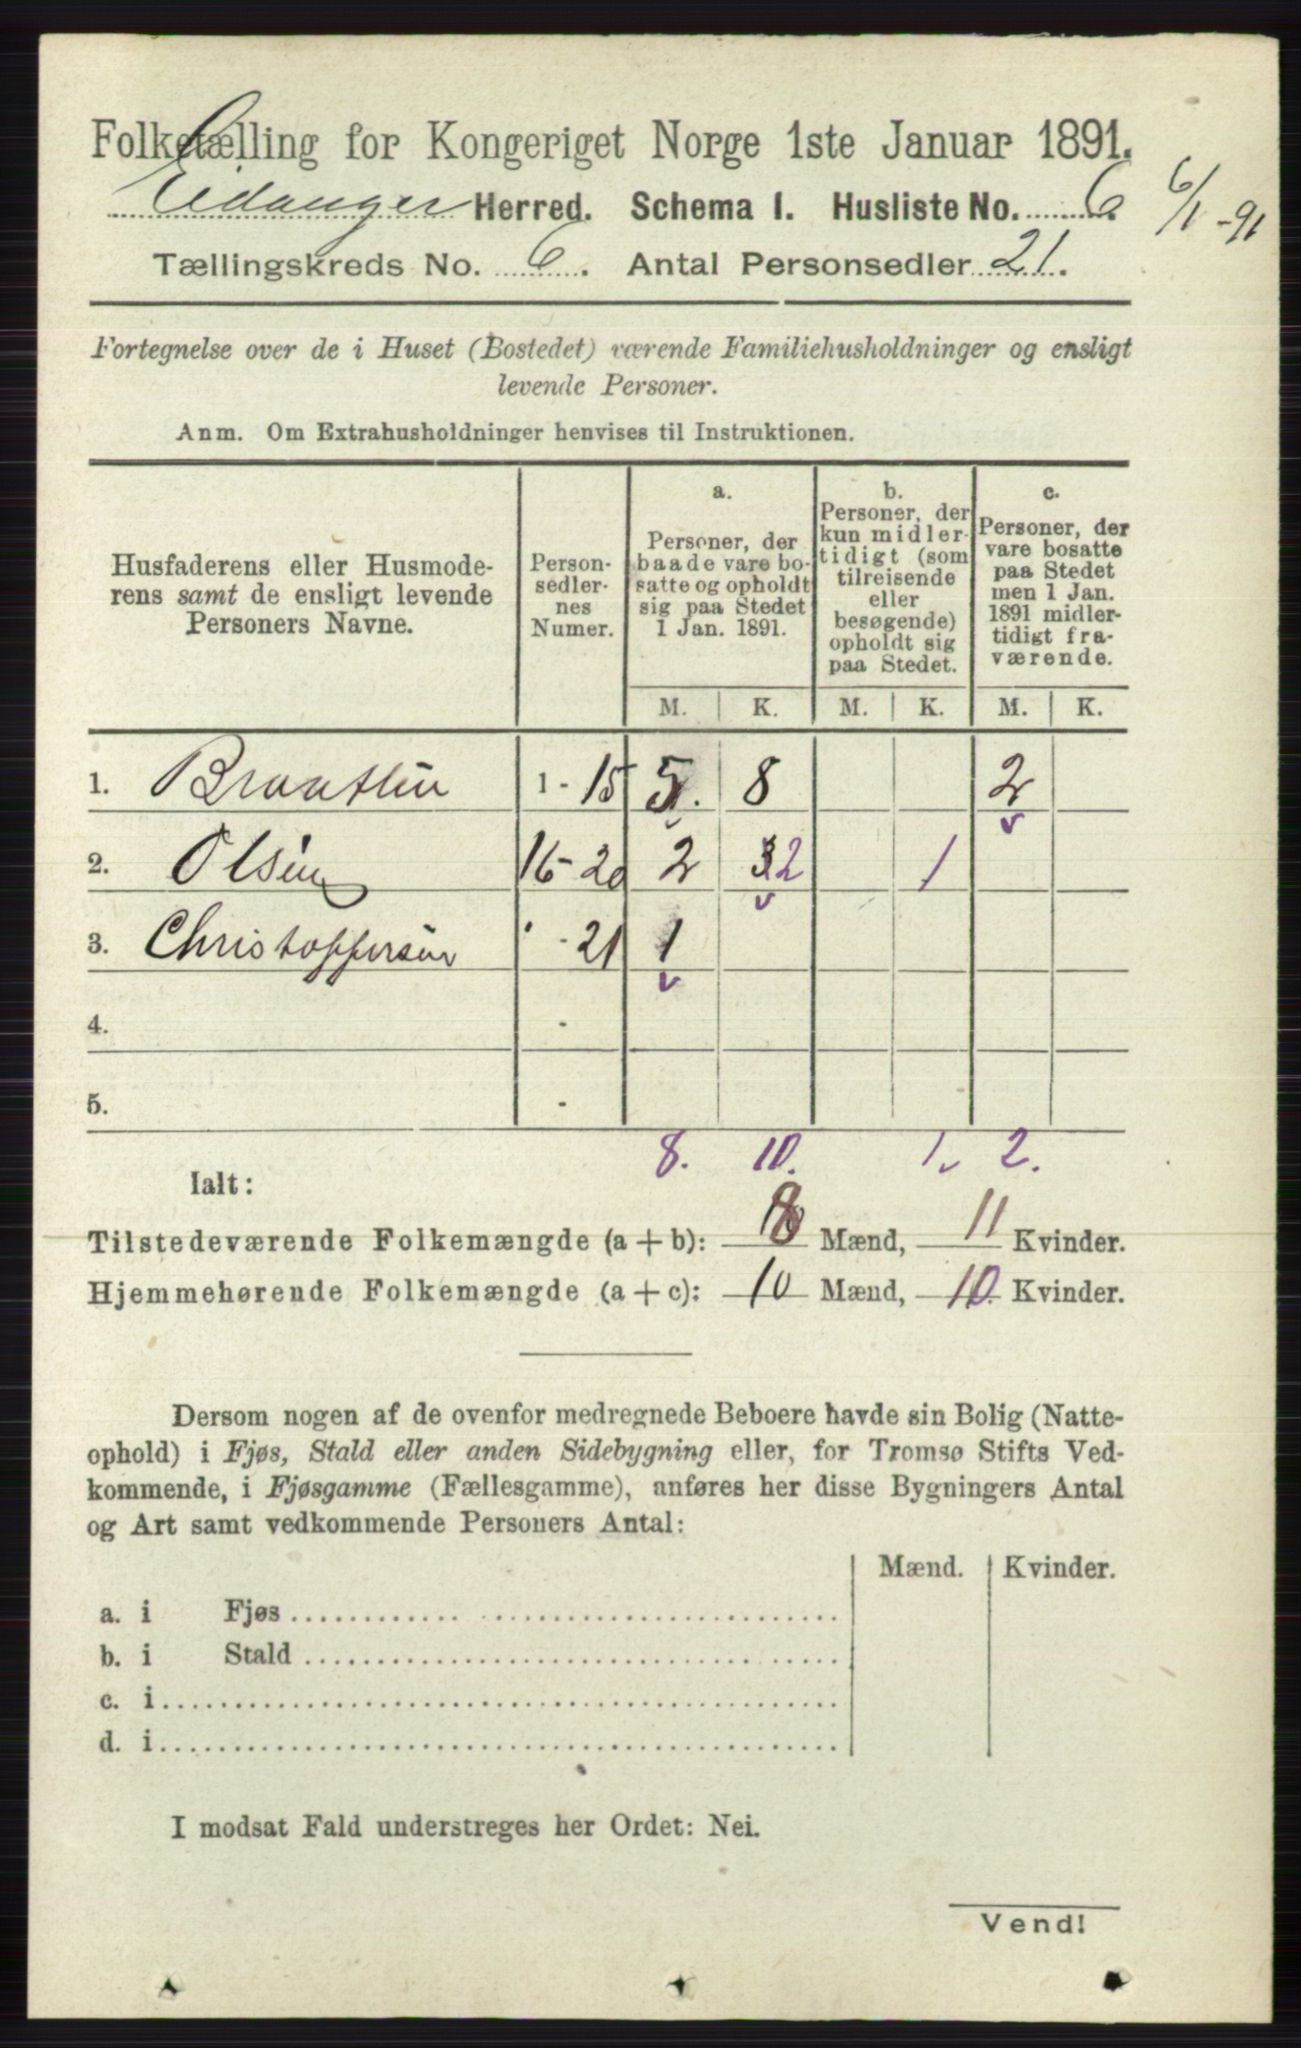 Folketælling for Kongeriget Norge 1ste Januar 1891.
Eidanger Herred. Schema 1. Husliste No. 6
6/1 -91
Tællingskreds No. 6. Antal Personsedler 21.
Fortegnelse over de i Huset (Bostedet) værende Familiehusholdninger og ensligt
levende Personer.
Anm. Om Extrahusholdninger henvises til Instruktionen.
Husfaderens eller Husmode-
rens samt de ensligt levende
Personers Navne.
Person-
sedler-
nes
Numer.
a.
Personer, der
baade vare bo-
satte og opholdt
sig paa Stedet
1 Jan. 1891.
b.
Personer, der
kun midler-
tidigt (som
tilreisende
eller
besøgende)
opholdt sig
paa Stedet.
c.
Personer, der
vare bosatte
paa Stedet
men 1 Jan.
1891 midler-
tidigt fra-
værende.
M. K. M. K. M. K.
1. 1 - 15 5. 8 2
v
2. Olsen 16 - 20 2 32 1
v
3. Christoffersen - 21 1
v
4. -
5. -
8. 10. 1. 2.
Ialt:
Tilstedeværende Folkemængde (a + b): 8 Mænd, 11 Kvinder.
Hjemmehørende Folkemængde (a + c): 10 Mænd, 10. Kvinder.
Dersom nogen af de ovenfor medregnede Beboere havde sin Bolig (Natte-
ophold) i Fjøs, Stald eller anden Sidebygning eller, for Tromsø Stifts Ved-
kommende, i Fjøsgamme (Fællesgamme), anføres her disse Bygningers Antal
og Art samt vedkommende Personers Antal:
Mænd. Kvinder.
a. i Fjøs
b. i Stald
c. i
d. i
I modsat Fald understreges her Ordet: Nei.
Vend!